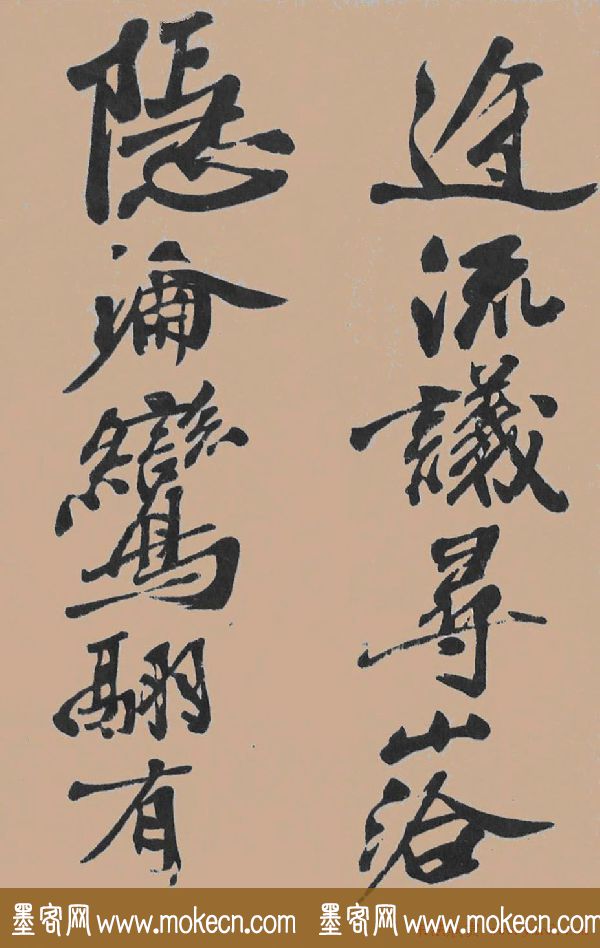 迕流議尋山洽
隱淪鸞翮有
墨客网 www.mokecn.com 墨客网 www.mokecn.com